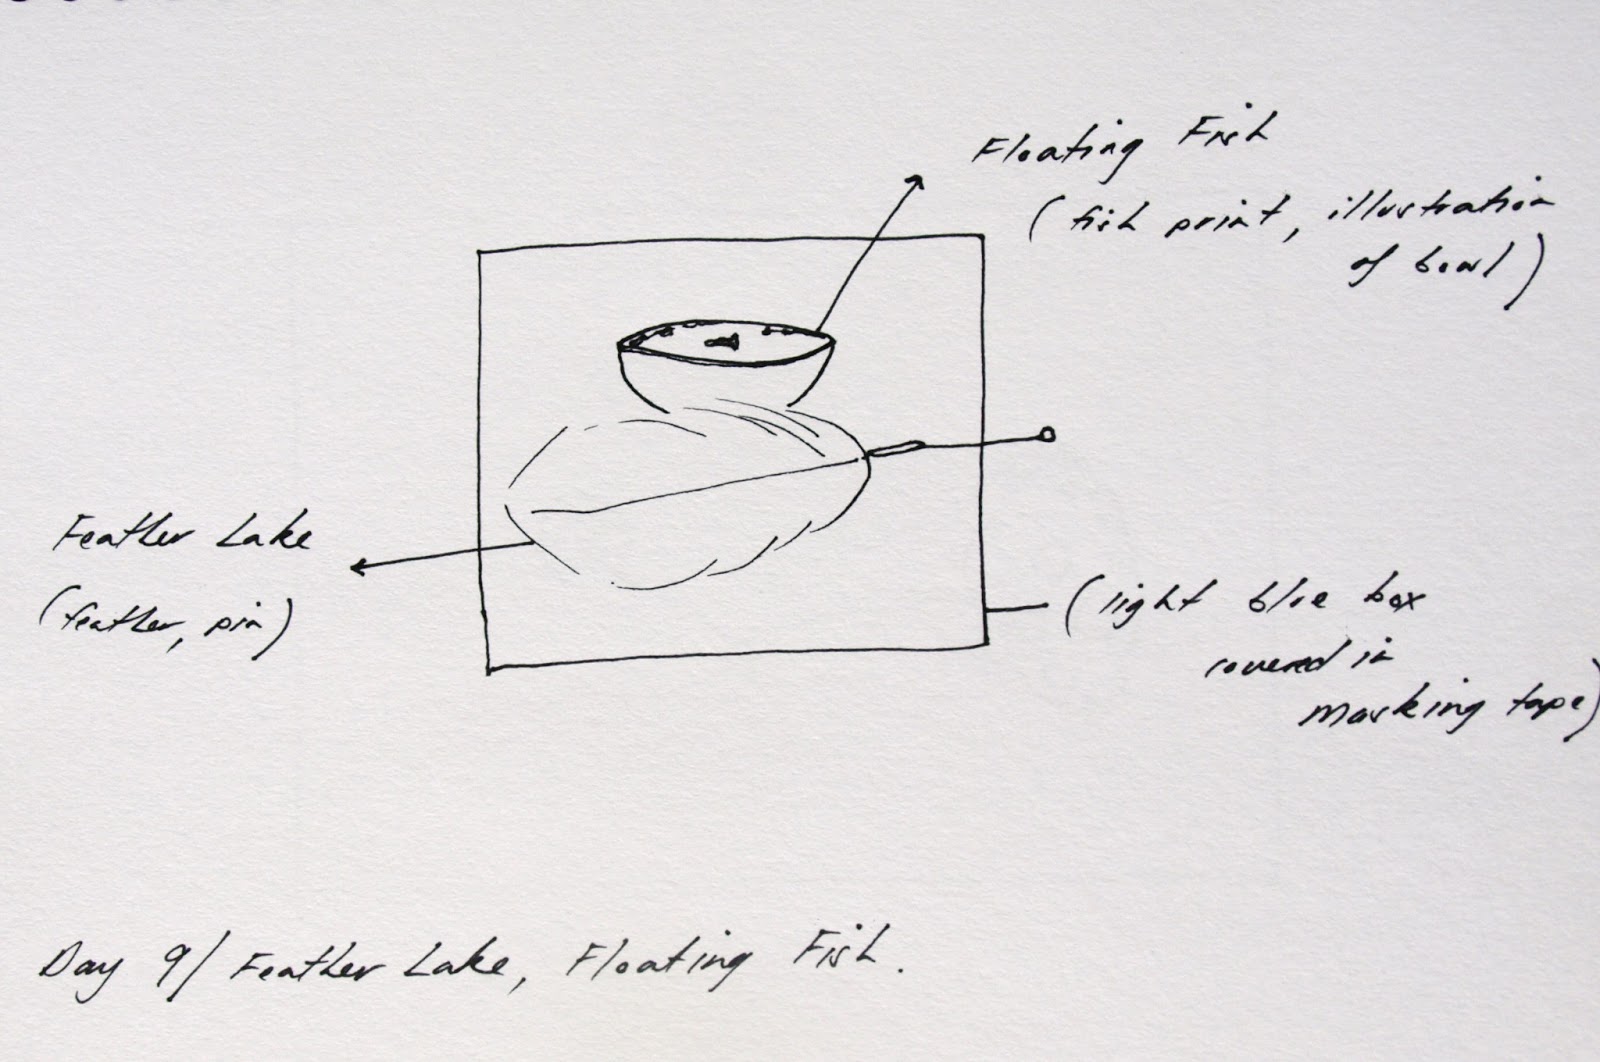 Floating Fish
(fish print, illustration
of bowl)
Feather Lake
(feather, pin)
(light blue box
covered in
masking tape)
Day 9/ Feather Lake, Floating Fish.